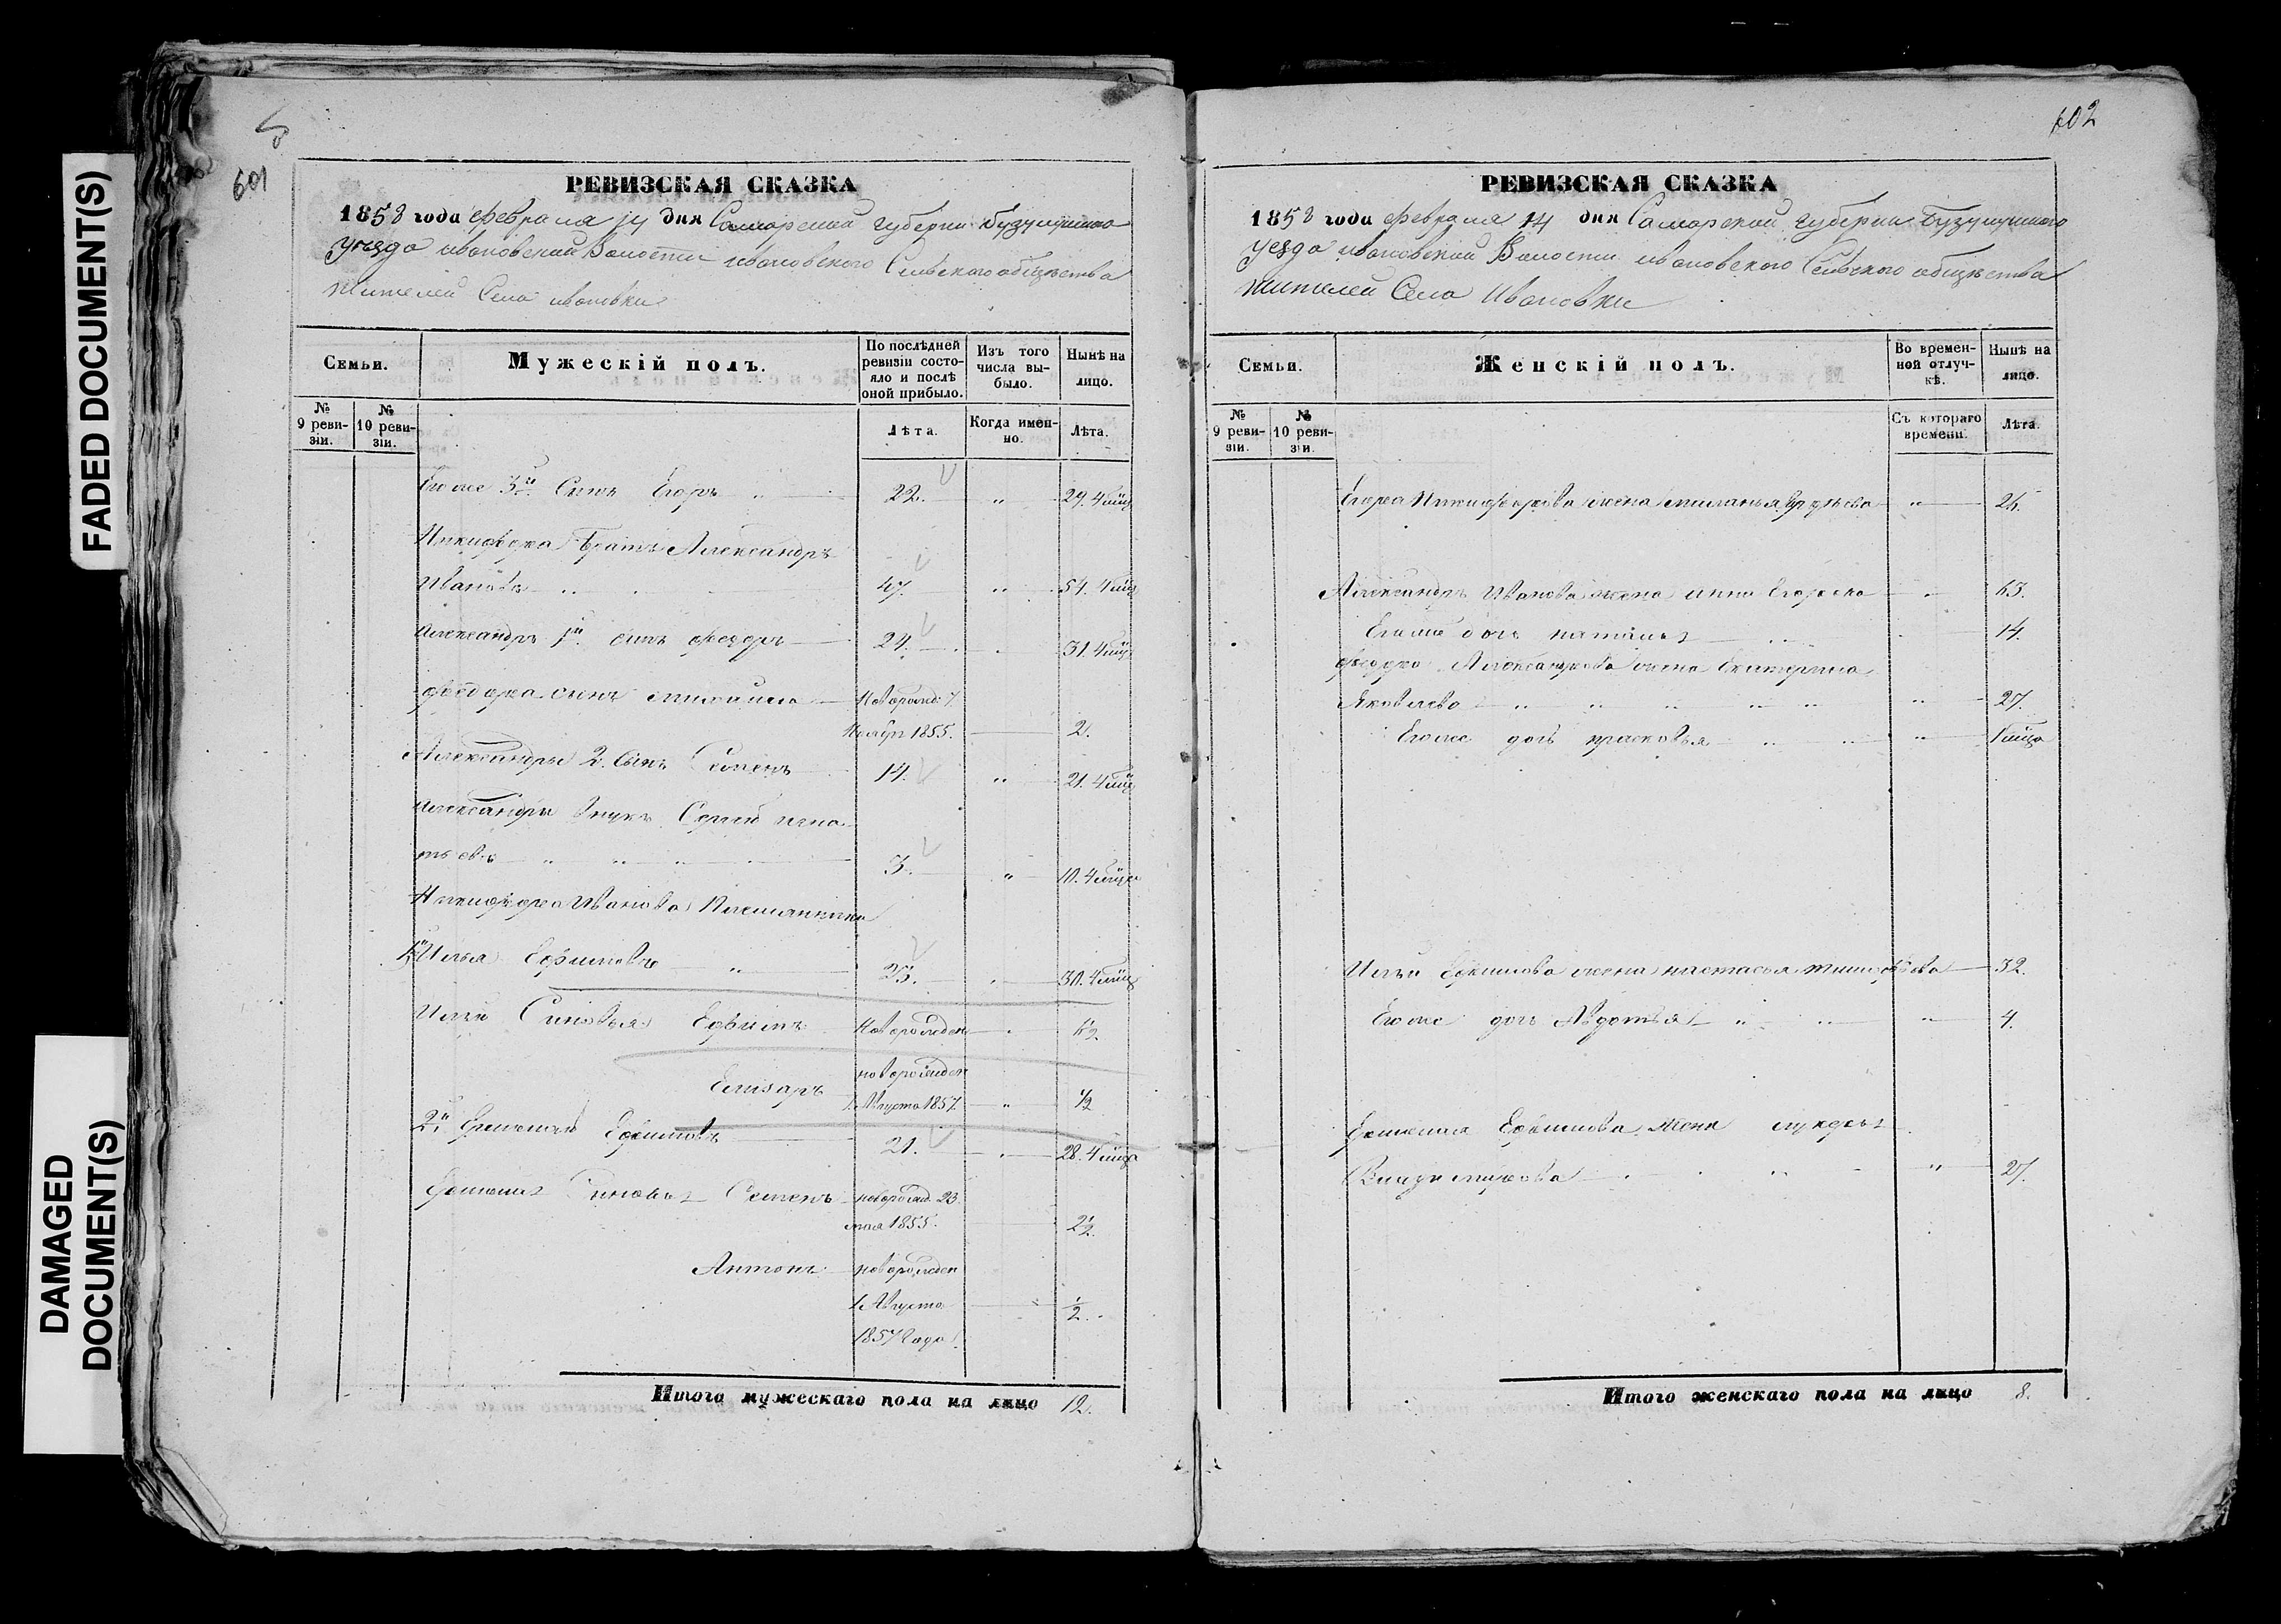 FADED DOCUMENT(S)
DAMAGED
DOCUMENT(S)
601
РЕВИЗСКАЯ СКАЗКА
1858 года февраля 14 дня Самарской губернии Бузулуцкаго
уезда ивановской Волости ивановского Сельского общества
жителей Села ивановки
Семьи.
Мужескій полъ.
По послѣдней
ревизіи состо-
яло и послѣ
оной прибыло.
Изъ того
числа вы-
было.
Нынѣ на
лицо.
№
9 реви-
зіи.
№
10 реви-
зіи.
Лѣта.
Когда имен-
но.
Лѣта.
Егоже 3й Сынъ Егоръ 22. " 29. 4 мца
Никифора братъ Александръ
Ивановъ 47. " 54. 4 мца
Александръ 1й сынъ федоръ 24. " 31. 4 мца
федора сынъ михайла Новорожд. 7
1855. 2.
Александры 2. Сынъ Семенъ 14. " 21. 4 мца
Александры внукъ Сергей игна
тьевъ 3. " 10. 4 мца
Никифора Иванова Племянники
1й Илья Ефимовъ 23. " 30. 4 мца
Ильи Сыновья Ефимъ Новорожден " 1½
Елизаръ новорожден
1 Августа 1857 " ½
2й Ефимовъ 21. " 28. 4 мца
Сыновья Семенъ новорожд. 23
мая 1855. 2½
Антонъ новорожден
1 Августа ½
1857 Года
Итого мужескаго пола на лицо 12.
602
РЕВИЗСКАЯ СКАЗКА
1858 года февраля 14 дня Самарской губернии Бузулуцкаго
уезда ивановской Волости ивановского Сельского общества
жителей Села Ивановки
Семьи.
Женскій полъ.
Во времен-
ной отлуч-
кѣ.
Нынѣ на
лицо.
№
9 реви-
зіи.
№
10 реви-
зіи.
Съ котораго
времени.
Лѣта.
Егора Никифорова жена миланья " 26.
Александръ Иванова жена анна Егорова 63.
Егоже дочь наталья 14.
федора Александрова жена Екатерина
Яковлева " 27.
Егоже дочь прасковья " 1 мца
Ильи Ефимова жена настасья тимофеева 32.
Егоже дочь Авдотья " 4.
Ефимова жена лукерья
Владимирова " 27.
Итого женскаго пола на лицо 8.